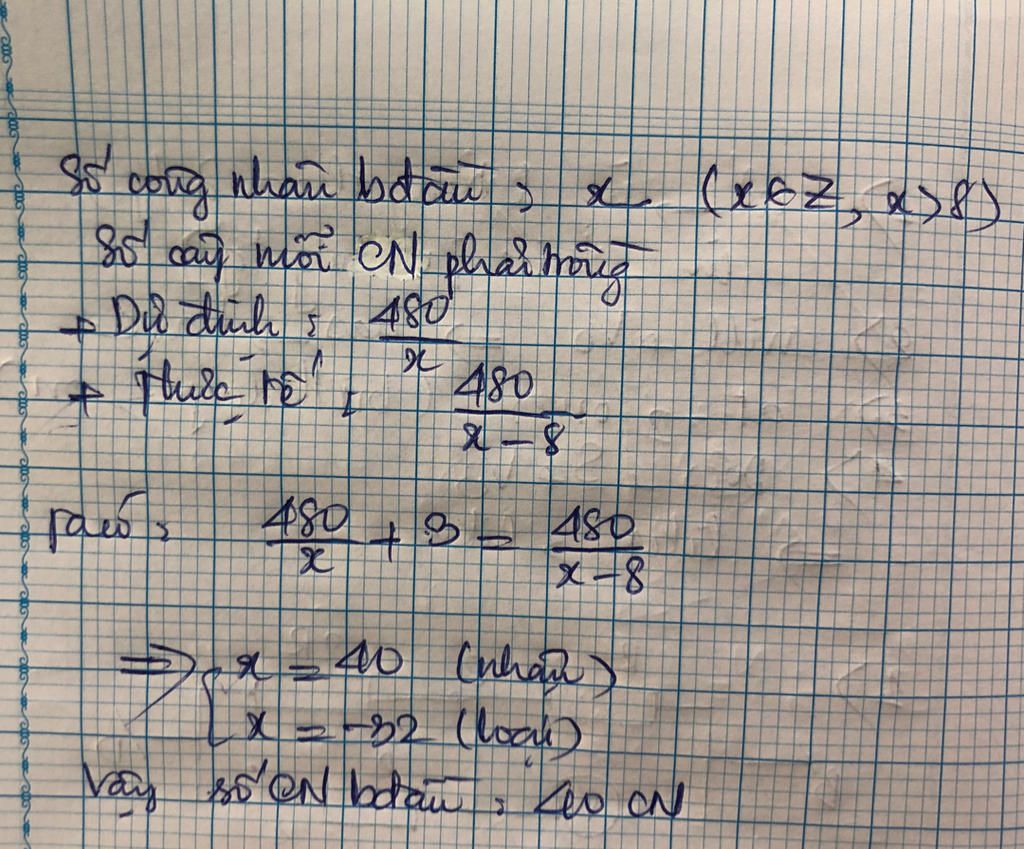 Số công nhân bđầu : x. (x ∈ Z, x > 8)
Số cây mỗi CN phải trồng
+ Dự định : 480/x
+ Thực tế : 480/(x - 8)
Ta có : 480/x + 3 = 480/(x - 8)
⇒ [ x = 40 (nhận)
x = -32 (loại)
Vậy số CN bđầu : 40 CN